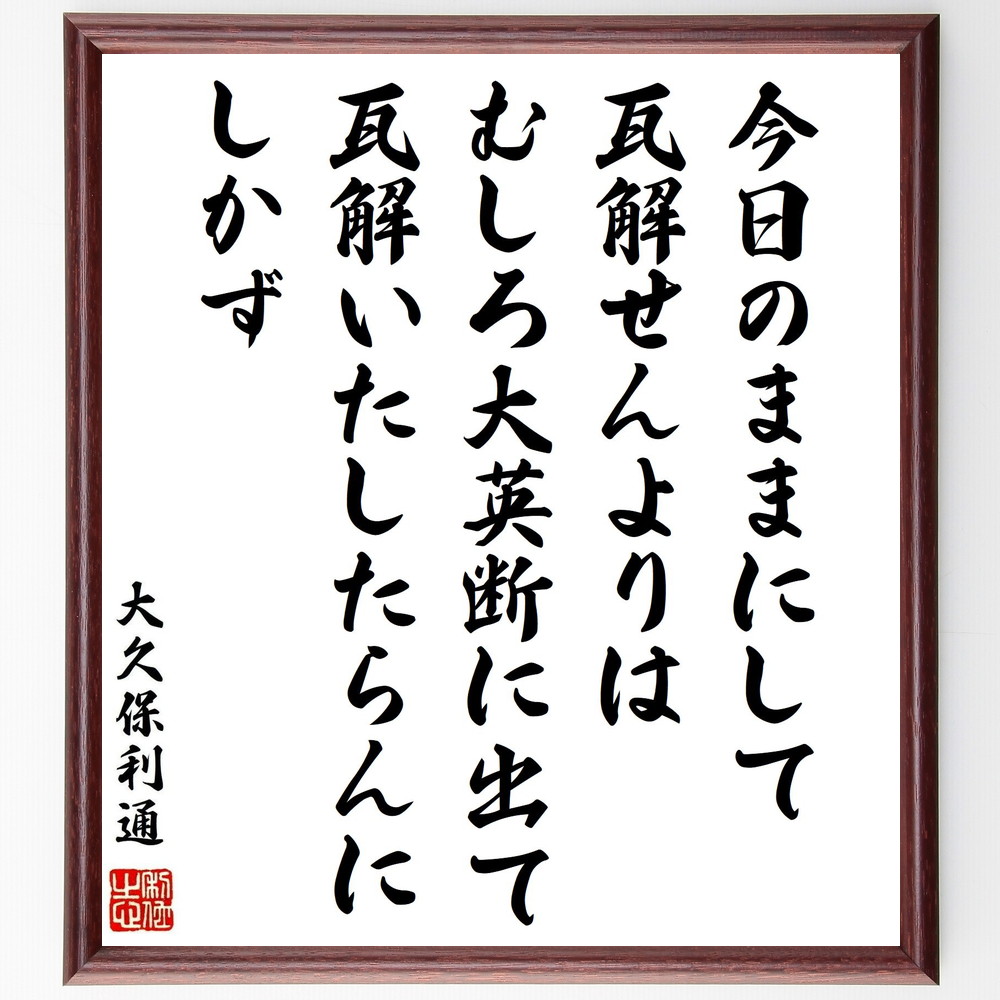 今日のままにして
瓦解せんよりは
むしろ大英断に出て
瓦解いたしたらんに
しかず
大久保利通